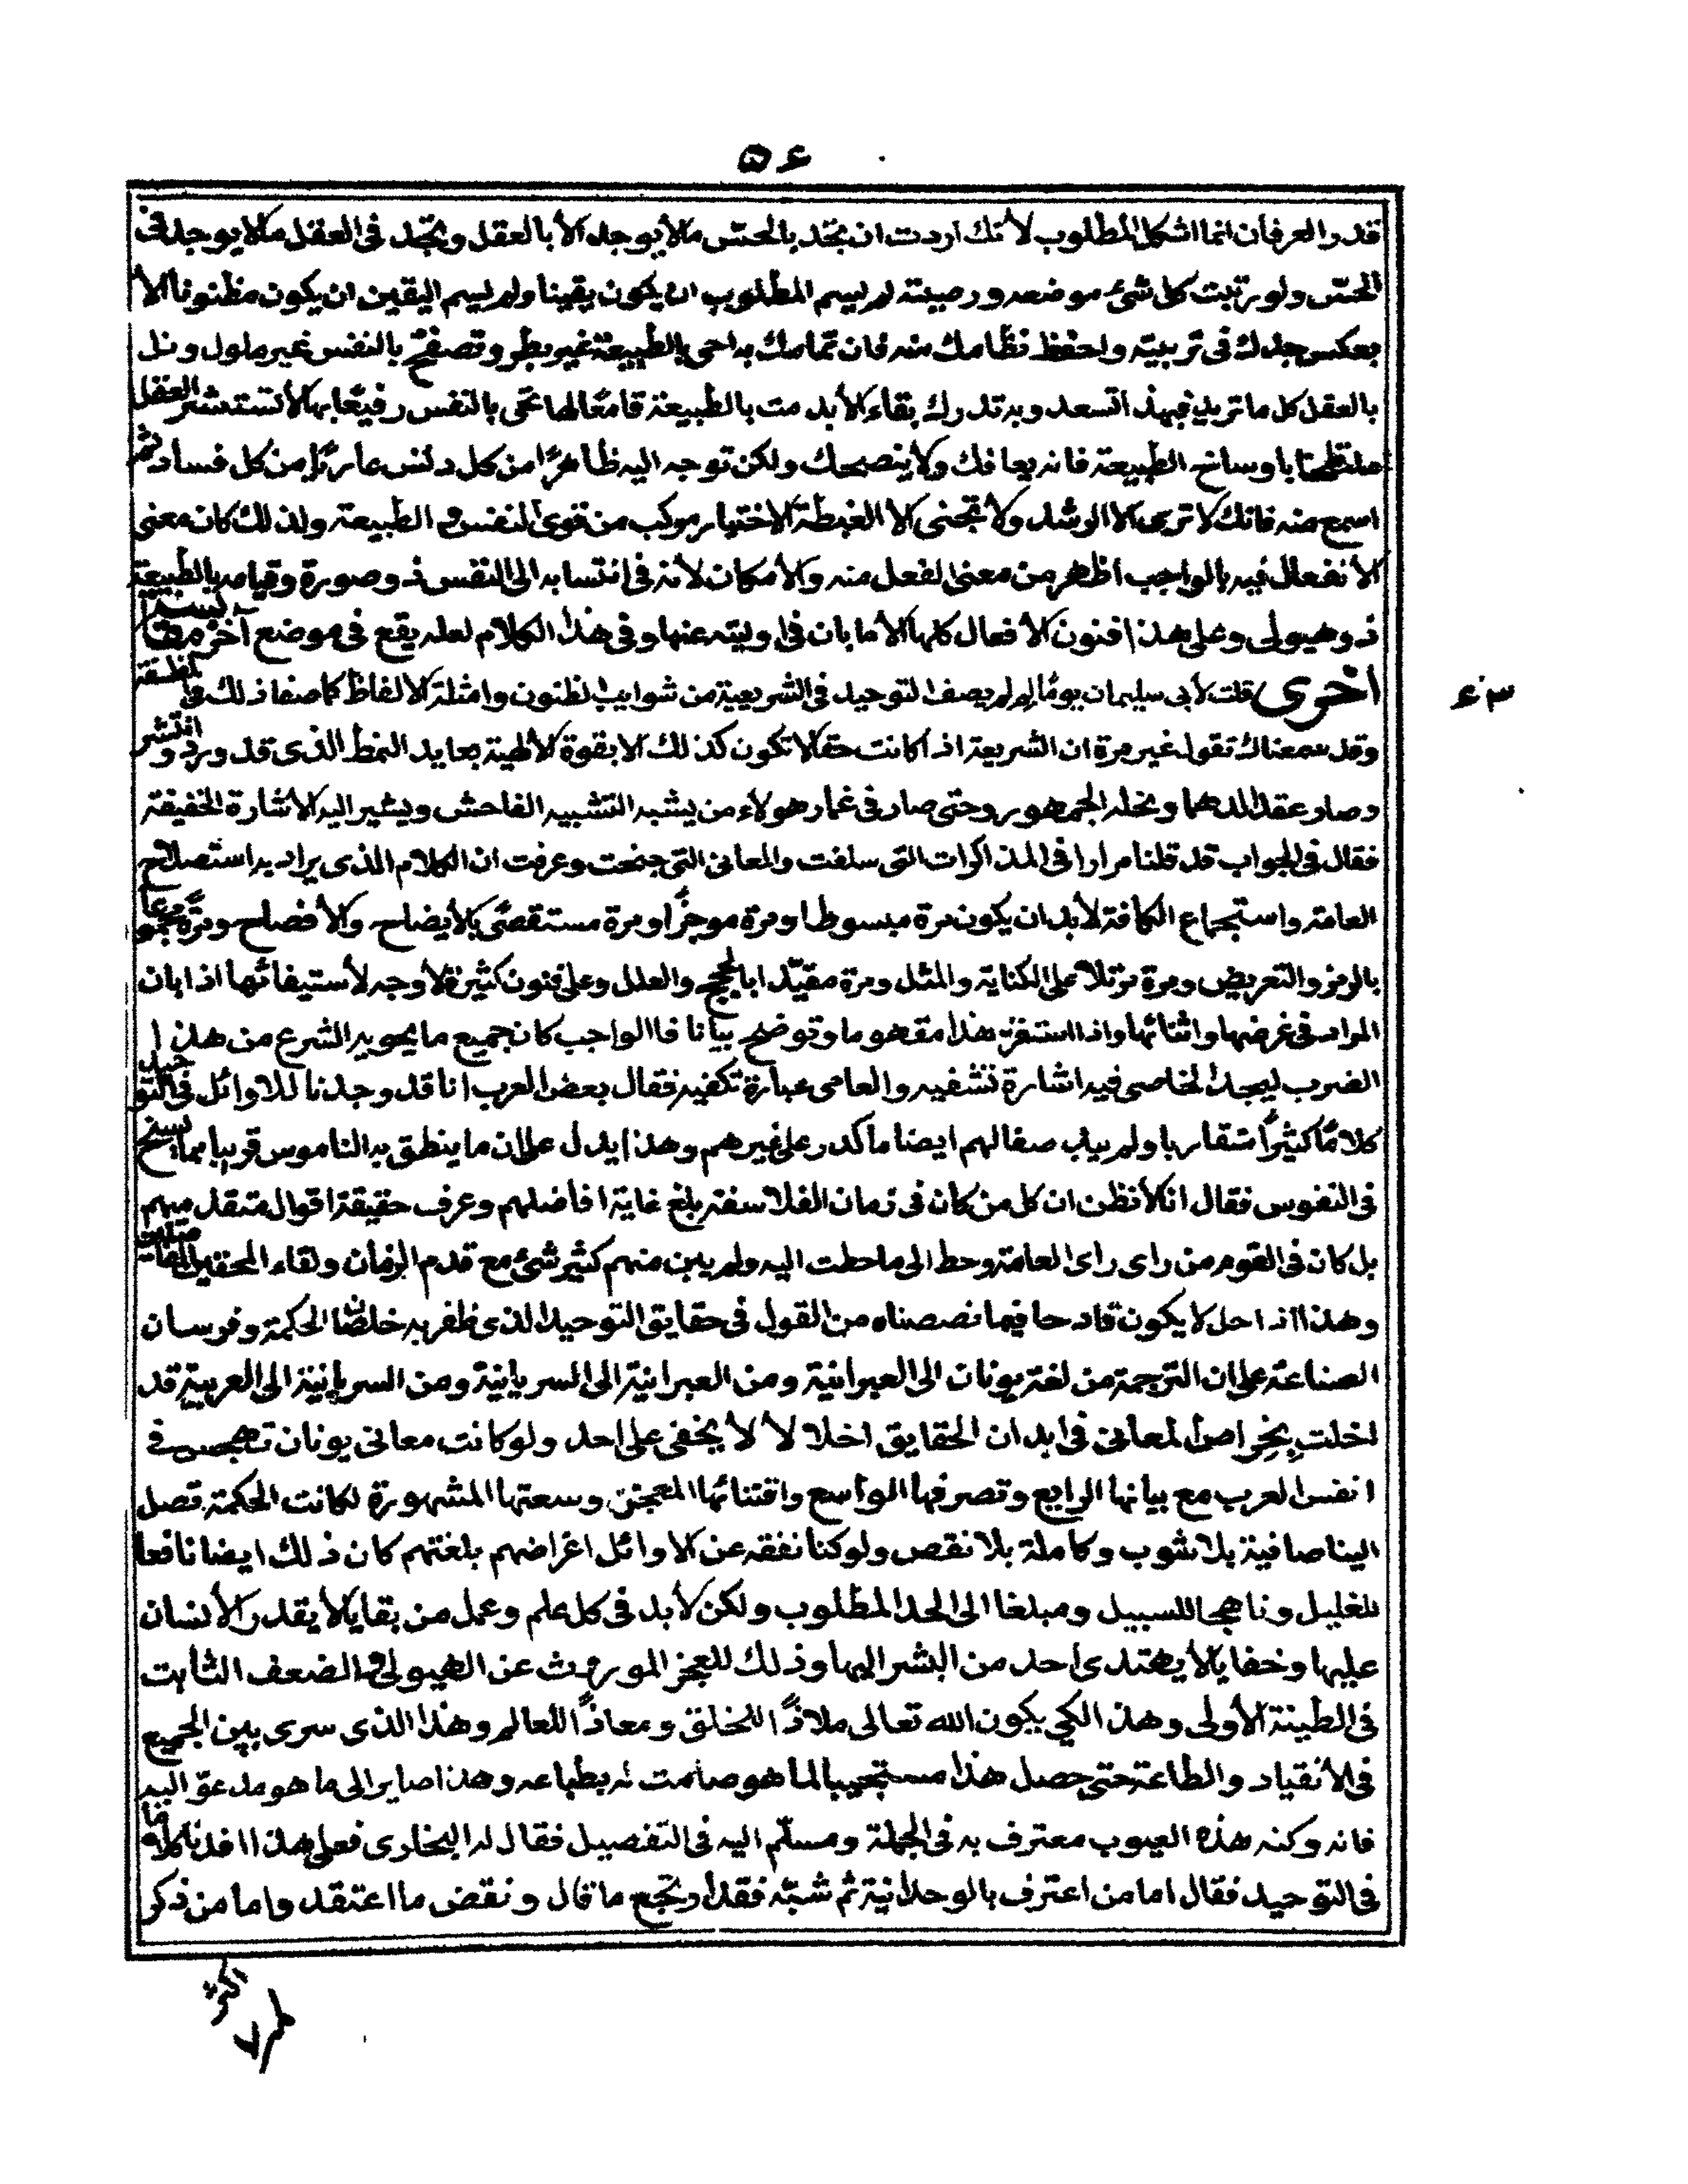 ٥٤
قدر العرفان انما اشكل المطلوب لأنك اردت ان تجد بالحس مالأيوجد الأبالعقل وتجد فى العقل مالايوجد فى
الحسّ ولو رتبت كل شئ موضعه ورصيته لم ليسم المطلوب ان يكون يقينا ولم ليسم اليقين ان يكون مظنونا الأ
بعكس جدك فى تربيته واحفظ نظامك منه فان تمامك به احى بالطبيعة غير بطر وتصفح بالنفس غير ملول ونل
بالعقل كل ما تريد فبهذا تسعد وبه تدرك بقاء الأبد مت بالطبيعة قامعًا لها تحى بالنفس رفيعًا بها لأتستشر العقل
ملتطخا باوساخ الطبيعة فانه يعافك ولا ينصحك ولكن توجه اليه طاهرًا من كل دنس عاريًا من كل فساد ثم
اسمع منه فانك لا ترى الا الرشد ولأ تجنى الا الغبطة الاختيار مركب من قوى النفس و الطبيعة ولذلك كان معنى
الأنفعال فيه بالواجب اظهر من معنى الفعل منه والأمكان لأنه فى انتسابه الى النفس ذو صورة وقيامه بالطبيعة
ذو هيولى وعلى هذا فنون الأفعال كلها الأما بان فى اوليته عنها وفى هذا الكلام لعله يقع فى موضع آخر
اخرى قلت لأبى سليمان يومًا لو لم يصف التوحيد فى الشريعة من شوايب الظنون وامثلة الالفاظ كما صفا ذلك فى
وقد سمعناك تقول غير مرة ان الشريعة اذا كانت حقا لا تكون كذلك الا بقوة الألهية بعايد النمط الذى قد ورد و انتشر
وصار عقد الدهما ونحلة الجمهور وحتى صار فى غمار هولاء من يشبه التشبيه الفاحش ويشير اليه الاشارة الخفيفة
فقال فى الجواب قد قلنا مرارا فى المذاكرات التى سلفت والمعانى التى جنحت وعرفت ان الكلام الذى يراد به استصلاح
العامة واستجماع الكافة لأبد ان يكون مرة مبسوطا ومرة موجزًا ومرة مستقصىً بالأيضاح والأفصاح ومرّة مجموعا
بالرمز والتعريض ومرة مرسلا على الكناية والمثل ومرة مقيّدا بالحجج والعلل وعلى فنون كثيرة لأوجه لأستيفائها اذا بان
المراد فى غرضها واثنائها واذا استفز هذا مفهوما وتوضح بيانا فاالواجب كان جميع ما يحويه الشرع من هذا
الضرب ليجد الخاصى فيه اشارة تشفيه والعامى عبارة تكفيه فقال بعض العرب انا قد وجدنا للاوائل فى التوحيد
كلامًا كثيرًا متقاربا ولم صفا لهم ايضا ما كدر على غيرهم وهذا يدل على ان ما ينطق به الناموس قريب مما يسنح
فى النفوس فقال انا لأنظن ان كل من كان فى زمان الفلاسفة بلغ غاية افاضلهم وعرف حقيقة اقوال متقدميهم
بل كان فى القوم من راى راى العامة وحط الى ما حطت اليه ولم يبن منهم كثير شئ مع قدم الزمان ولقاء المحققين
وهذا اذ احد لا يكون قادحا فيما نصصناه من القول فى حقايق التوحيد الذى ظفر به خلصان الحكمة وفرسان
الصناعة على ان الترجمة من لغة يونان الى العبرانية ومن العبرانية الى السريانية ومن السريانية الى العربية قد
اخلت بخواص المعانى فى ابدان الحقايق اخلالا لأ يخفى على احد ولو كانت معانى يونان تهجس فى
انفس العرب مع بيانها الرايع وتصرفها الواسع واقتنائها المعجز وسعتها المشهورة لكانت الحكمة تصل
الينا صافية بلا شوب وكاملة بلا نقص ولو كنا نفقه عن الاوائل اغراضهم بلغتهم كان ذلك ايضا نافعا
للغليل وناهجا للسبيل ومبلغا الى الحد المطلوب ولكن لأبد فى كل علم وعمل من بقايا لأيقدر الأنسان
عليها وخفايا لأيهتدى احد من البشر اليها وذلك للعجز الموروث عن الهيولى و الضعف الثابت
فى الطينة الأولى وهذا لكى يكون الله تعالى ملاذًا للخلق ومعاذًا للعالم وهذا الذى سرى بين الجميع
فى الأنقياد والطاعة حتى حصل هذا مستجيبا لما هو صامت له بطباعه وهذا صاير الى ما هو مدعوّ اليه
فانه وكنه هذه العيوب معترف به فى الجملة ومسلّم اليه فى التفصيل فقال له البخارى فعلى هذا افدنا كلاما
فى التوحيد فقال اما من اعترف بالوحدانية ثم شبّه فقد ارتجع ما قال ونقض ما اعتقد واما من ذكر